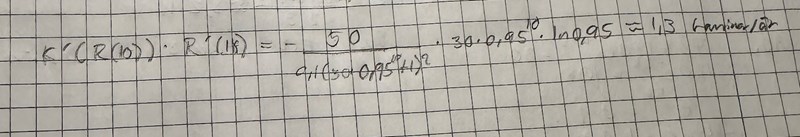 K'(R(10)) · R'(10) = - 50 / 0,1(30·0,95^10+1)^2 · 30·0,95^10 · ln0,95 ≈ 1,3 kaniner/år